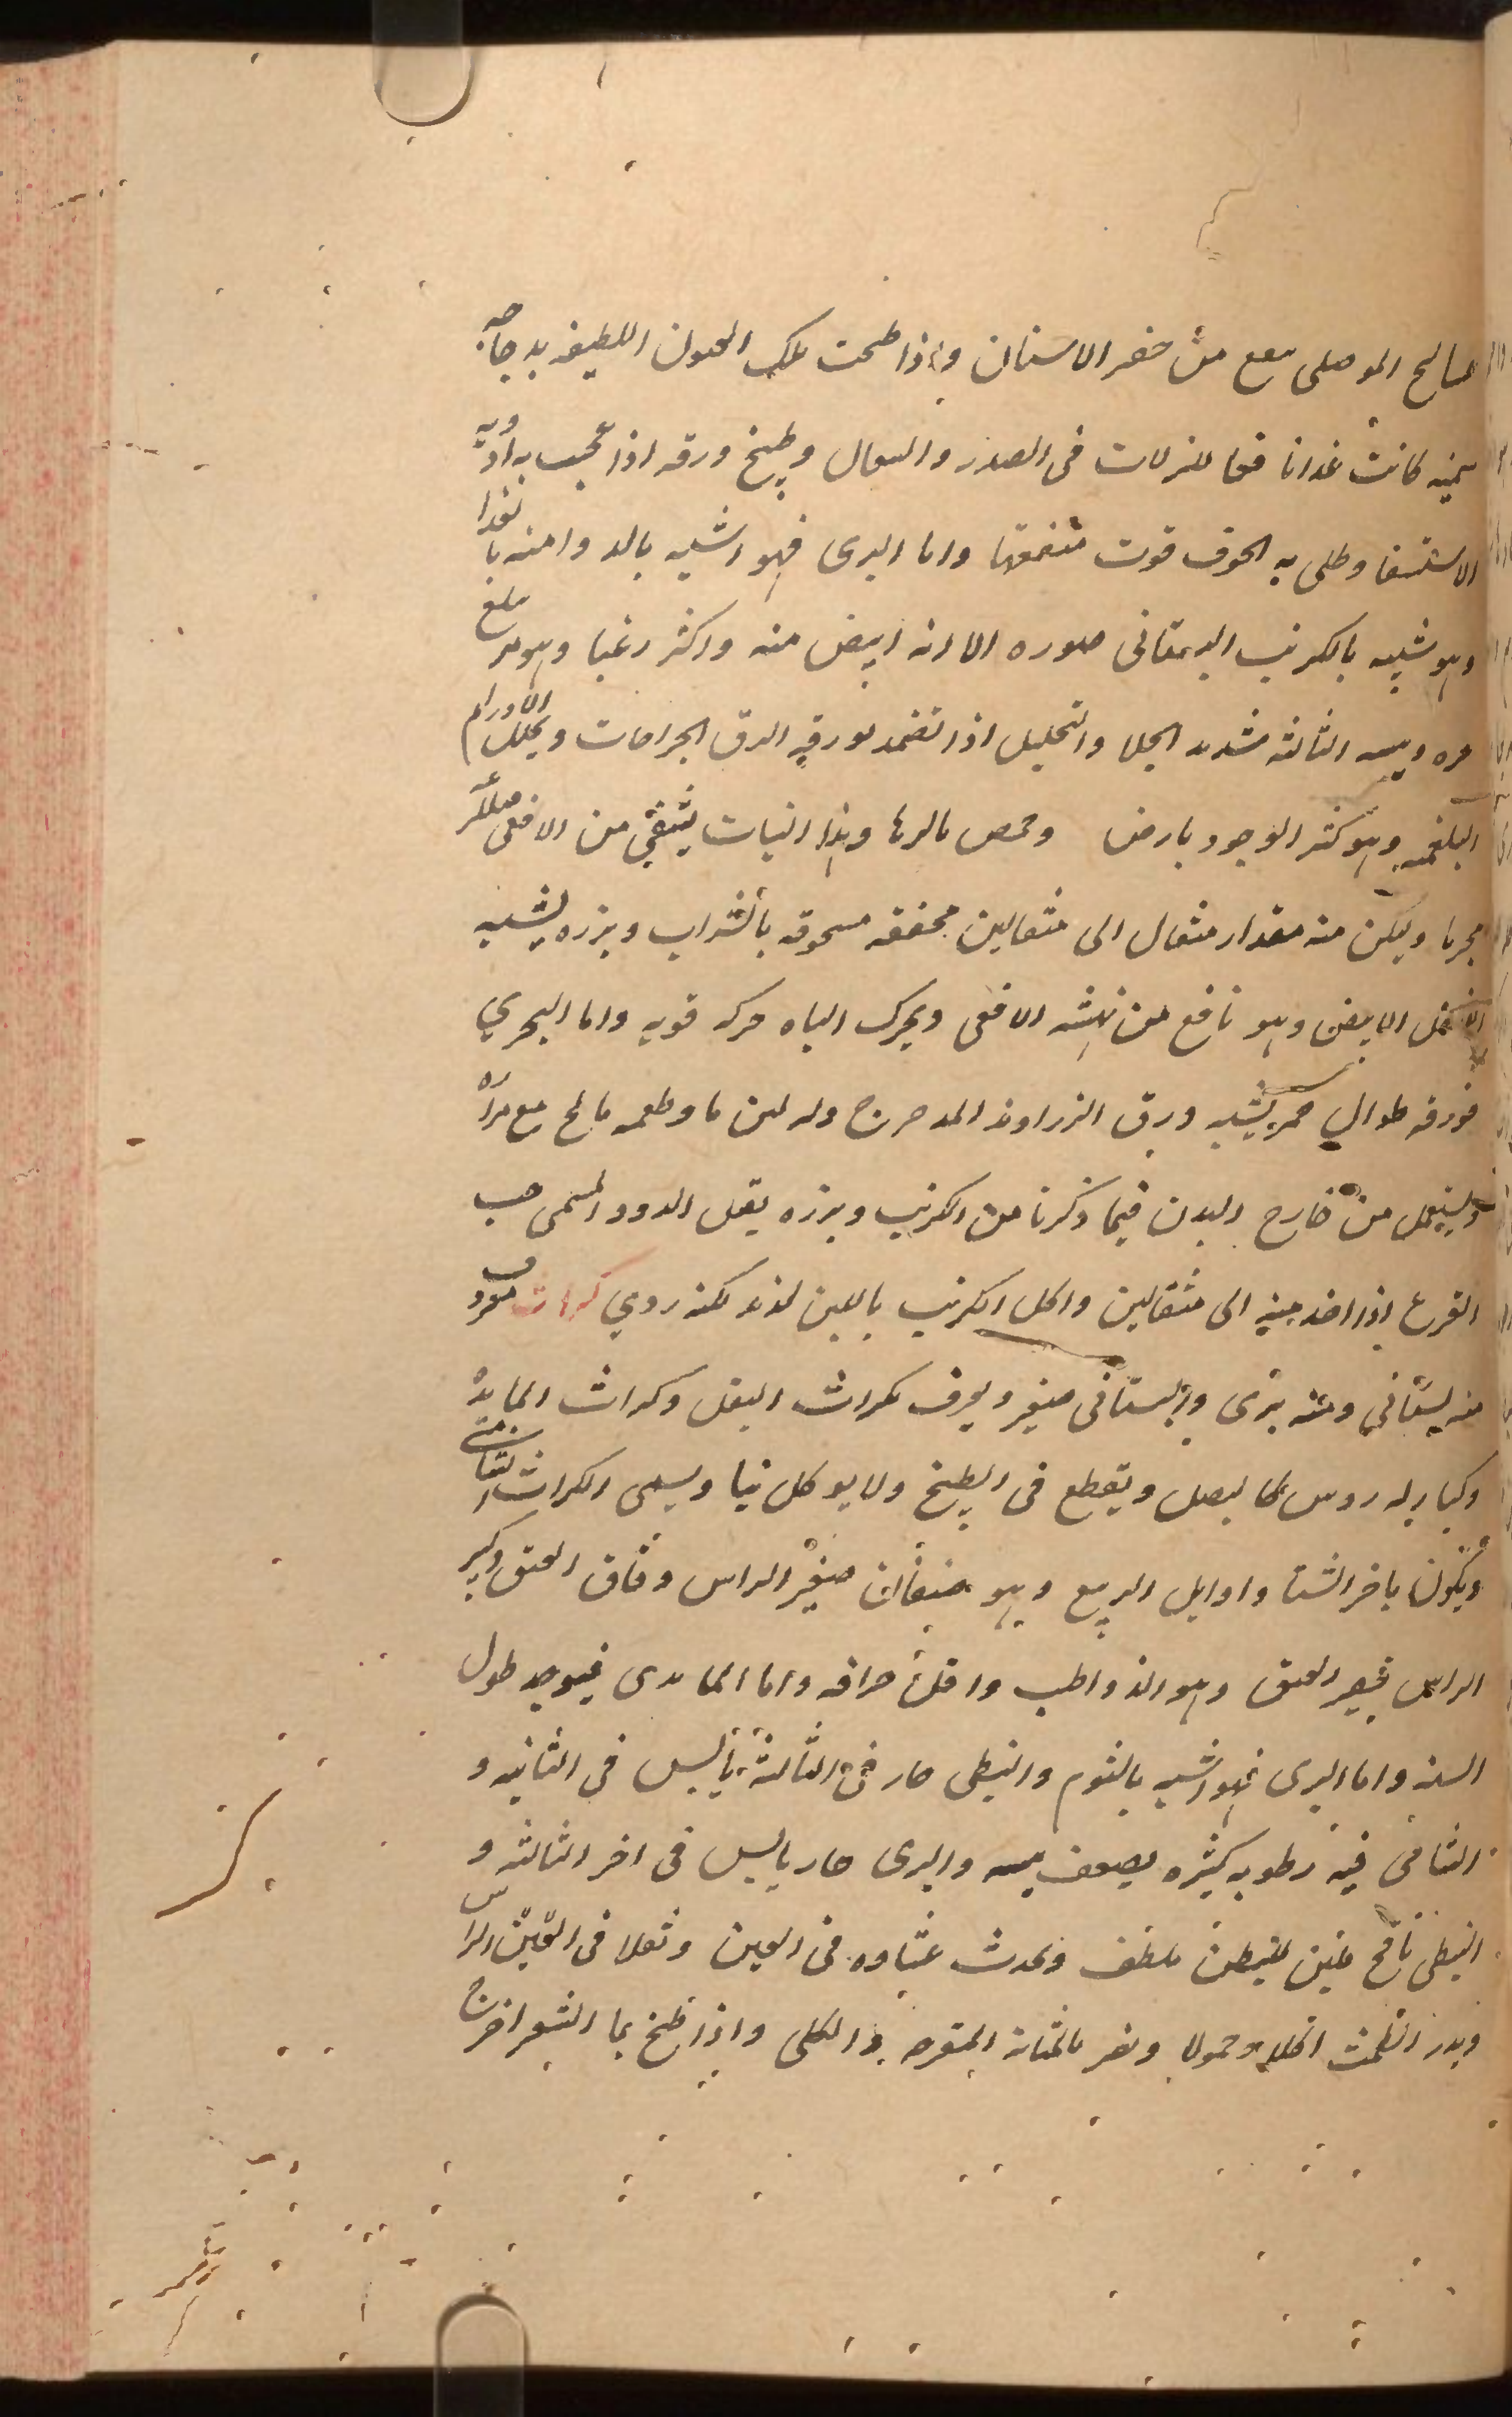 صالح الموصلى سفع من حفر الاسنان واذا طبخت تلك العيون اللطيفه بدجاجه
سمينه كانت غذا نافعا للنزلات فى الصدر والسعال وطبيخ ورقه اذا عجنت به ادويه
الاستسقا وطلى به الجوف قوت منفعتها واما البرى فهو اشبه بالدوا منه بالغدا
وهو شبيه بالكرنب البستانى صوره الا انه ابيض منه واكثر زغبا وهو مر
حره ويبسه الثالثه شديد الجلا والتحليل اذا تضمد بورقه الزق الجراحات ويحلل الاورام
البلغميه وهو كثير الوجود بارض وحمص بالرها وهذا النبات يشفى من الافعى
مجربا وليكن منه مقدار مثقال الى مثقالين مجففه مسحوقه بالشراب وبزره يشبه
الفلفل الابيض وهو نافع من نهشه الافعى ويحرك الباه حركه قويه واما البحري
فورقه طوال حمر يشبه ورق الزراوند المدحرج وله لبن ما وطعمه مالح مع مراره
وليستعمل من خارج البدن فيما ذكرنا من الكرنب وبزره يقتل الدود المسمى حب
القرع اذا اخذ منه الى مثقالين واكل الكرنب باللبن لذيذ لكنه ردي كراث معروف
منه بستانى ومنه برى والبستانى صغير ويعرف بكراث البقل وكراث المايده
وكبار له روس كالبصل ويقطع فى الطبيخ ولا يوكل نيا ويسمى الكراث الشامى
ويكون باخر الشتا واوايل الربيع وهو صنفان صغير الراس دقاق العنق وكبير
الراس قصير العنق وهو الذ واطيب واقل حرافه واما المايدى فيوجد طول
السنه واما البرى فهو اشبه بالثوم والنبطى حار فى الثالثه يابس فى الثانيه و
الشامى فيه رطوبه كثيره يضعف يبسه والبرى حار يابس فى اخر الثالثه و
النبطى نافخ ملين للبطن ملطف ويحدث غشاوه فى العين وثقلا فى العين الراس
ويدر الطمث اكلا وحمولا ويضر بالمثانه المتقرحه والكلى واذا طبخ بما الشعير اخرج